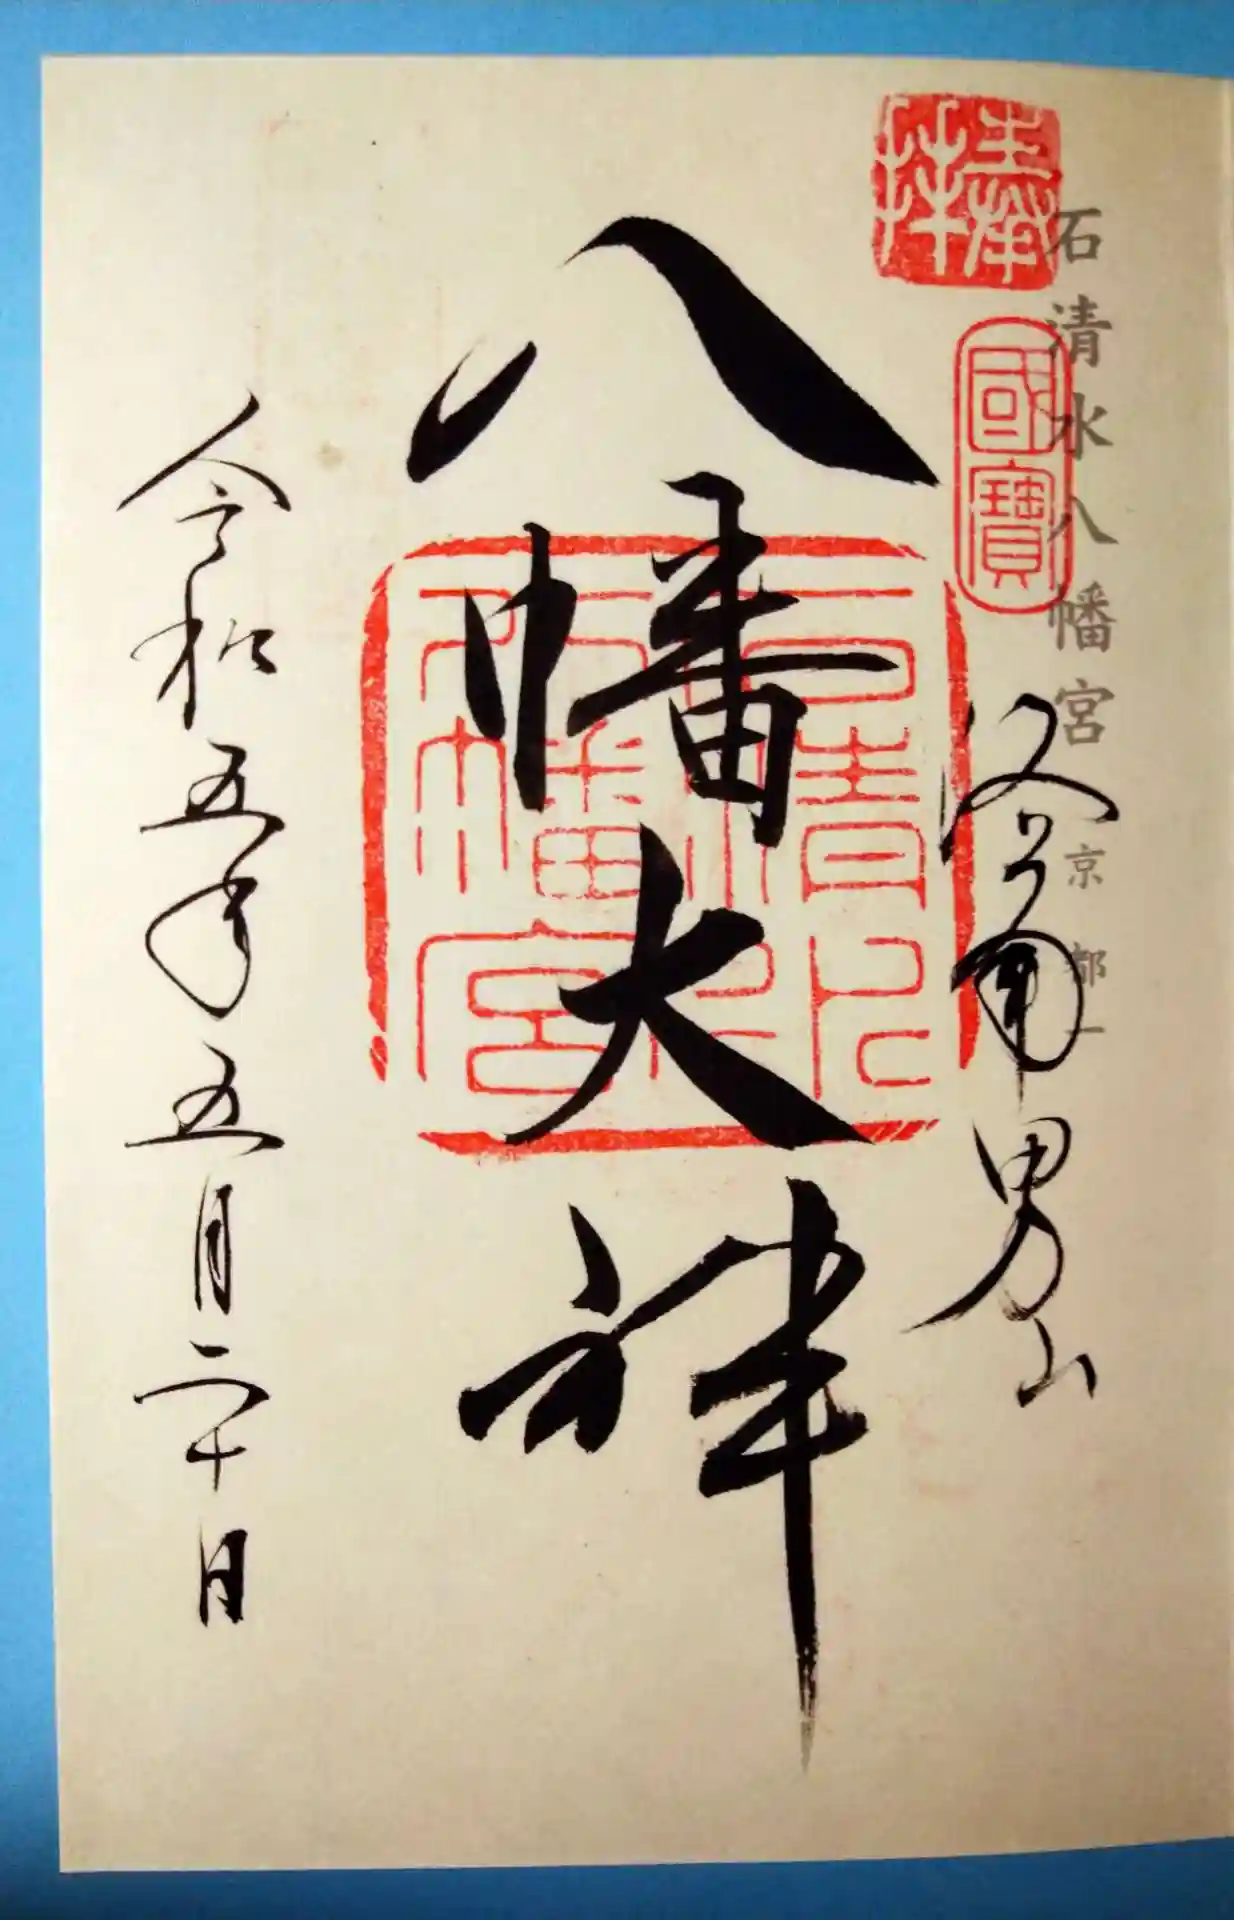 石清水八幡宮 京都
奉拝
國寶
洛南 男山
八幡大神
石清水八幡宮
令和五年五月二十日